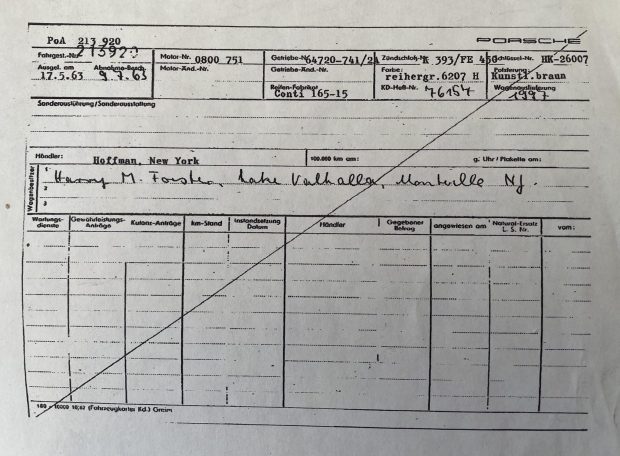 PoA 213 920
PORSCHE
Fahrgest.-Nr. 213920 Motor-Nr. 0800 751 Getriebe-Nr. 64720-741/2A Zündschloß-Nr. K 393/FE 430 Schlüssel-Nr. HK-26007
Ausgel. am Abnahme-Besch. Motor-Änd.-Nr. Getriebe-Änd.-Nr. Farbe: Polsterung:
17.5.63 9.7.63 reihergr.6207 H Kunstl.braun
Reifen-Fabrikat KD-Heft-Nr. 76157 Wagenauslieferung
Conti 165-15 1997
Sonderausführung/Sonderausstattung
Händler: Hoffman, New York 100.000 km am: g. Uhr / Plakette am:
Wagenbesitzer
1 Harry M. Forster, Lake Valhalla, Montville NJ.
2
3
Wartungsdienste Gewährleistungs-Anträge Kulanz-Anträge km-Stand Instandsetzung Datum Händler Gegebener Betrag angewiesen am Natural-Ersatz L. S. Nr. vom:
10/62 (Fahrzeugkartei Kd.) Greim